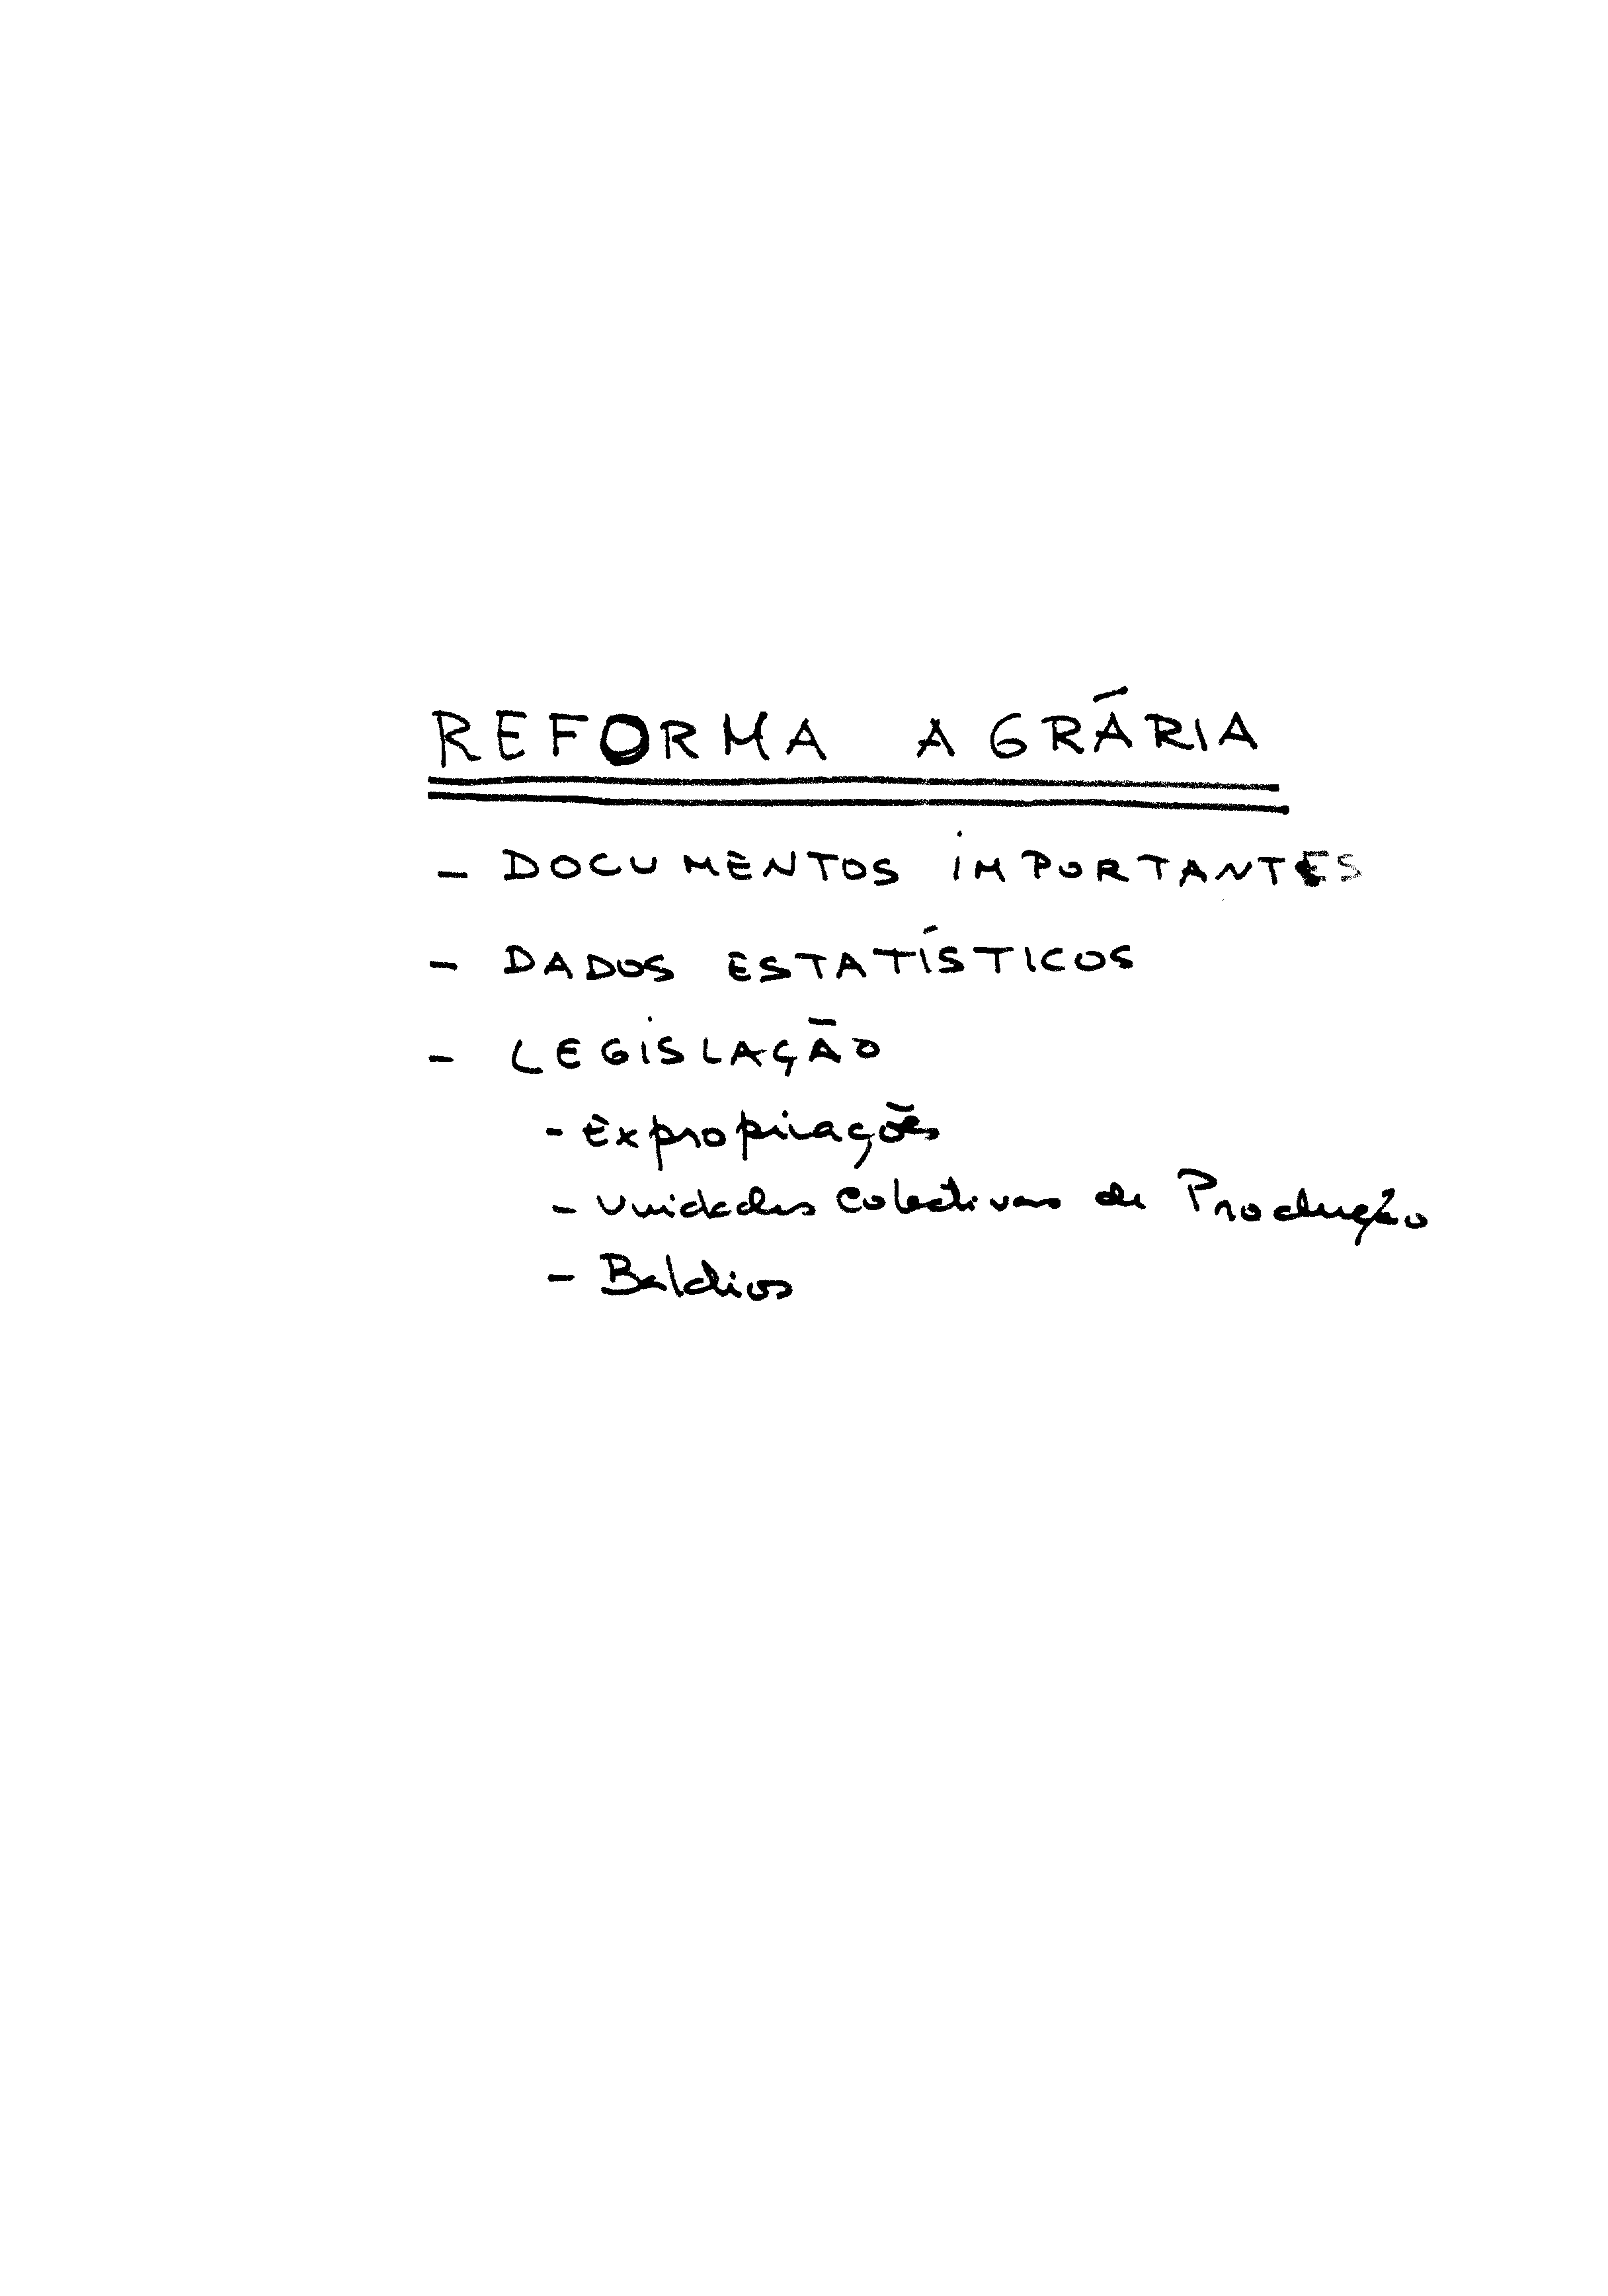 REFORMA AGRÁRIA
- DOCUMENTOS IMPORTANTES
- DADOS ESTATÍSTICOS
- LEGISLAÇÃO
- Expropriações
- Unidades Colectivas de Produção
- Baldios